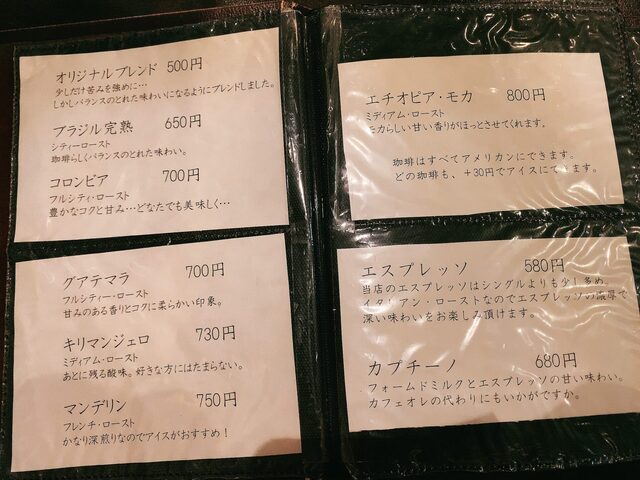 オリジナルブレンド 500円
少しだけ苦みを強めに…
しかしバランスのとれた味わいになるようにブレンドしました。
ブラジル完熟 650円
シティーロースト
珈琲らしくバランスのとれた味わい。
コロンビア 700円
フルシティ・ロースト
豊かなコクと甘み…どなたでも美味しく…
グアテマラ 700円
フルシティー・ロースト
甘みのある香りとコクに柔らかい印象。
キリマンジェロ 730円
ミディアム・ロースト
あとに残る酸味。好きな方にはたまらない。
マンデリン 750円
フレンチ・ロースト
かなり深煎りなのでアイスがおすすめ！
エチオピア・モカ 800円
ミディアム・ロースト
モカらしい甘い香りがほっとさせてくれます。
珈琲はすべてアメリカンにできます。
どの珈琲も、＋30円でアイスにできます。
エスプレッソ 580円
当店のエスプレッソはシングルよりも少し多め。
イタリアン・ローストなのでエスプレッソの濃厚で
深い味わいをお楽しみ頂けます。
カプチーノ 680円
フォームドミルクとエスプレッソの甘い味わい。
カフェオレの代わりにもいかがですか。